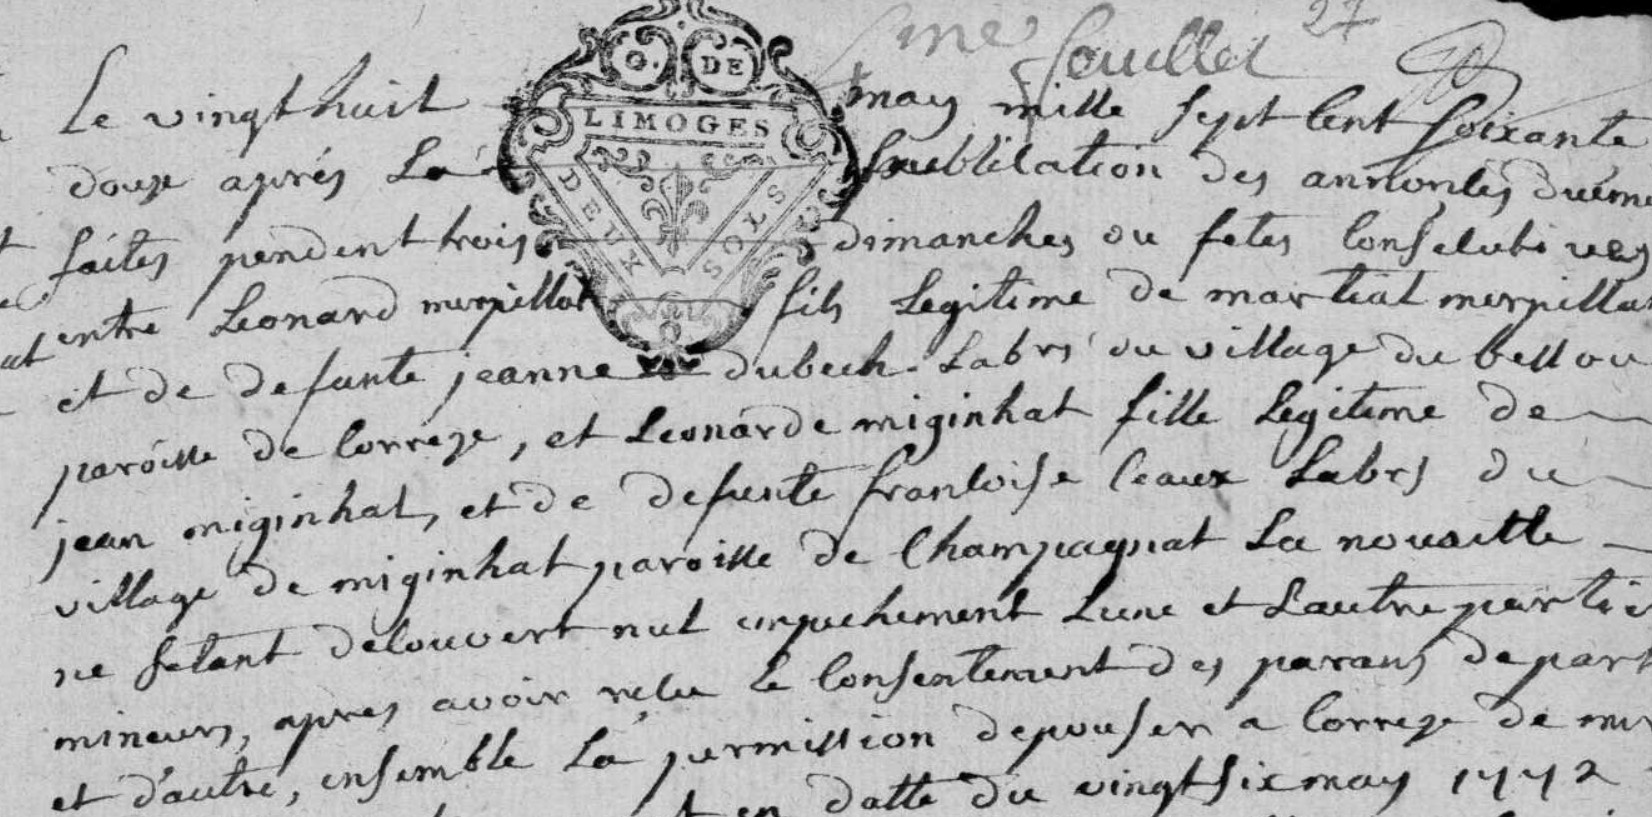 27
feuillet
G. DE
LIMOGES
DEUX SOLS
Le vingt huit may mille sept Cent soixante
douze aprés La publication des annonces duëme
faites pendent trois dimanches ou fetes Consecutives
entre Leonard merpillat fils Legitime de martial merpillat
et de defunte jeanne dubech Labrs du village du bellou
paroisse de Correze, et Leonarde miginhat fille Legitime de
jean miginhat, et de defunte francoise Ceaux Labrs du
village de miginhat paroisse de Champagnat La nouaille
ne setant decouvert nul empechement Lune et Lautre partie
mineurs, apres avoir recu le Consentement des parans de part
et d'autre, ensemble La permission depouser a Correze de
en datte du vingt six may 1772